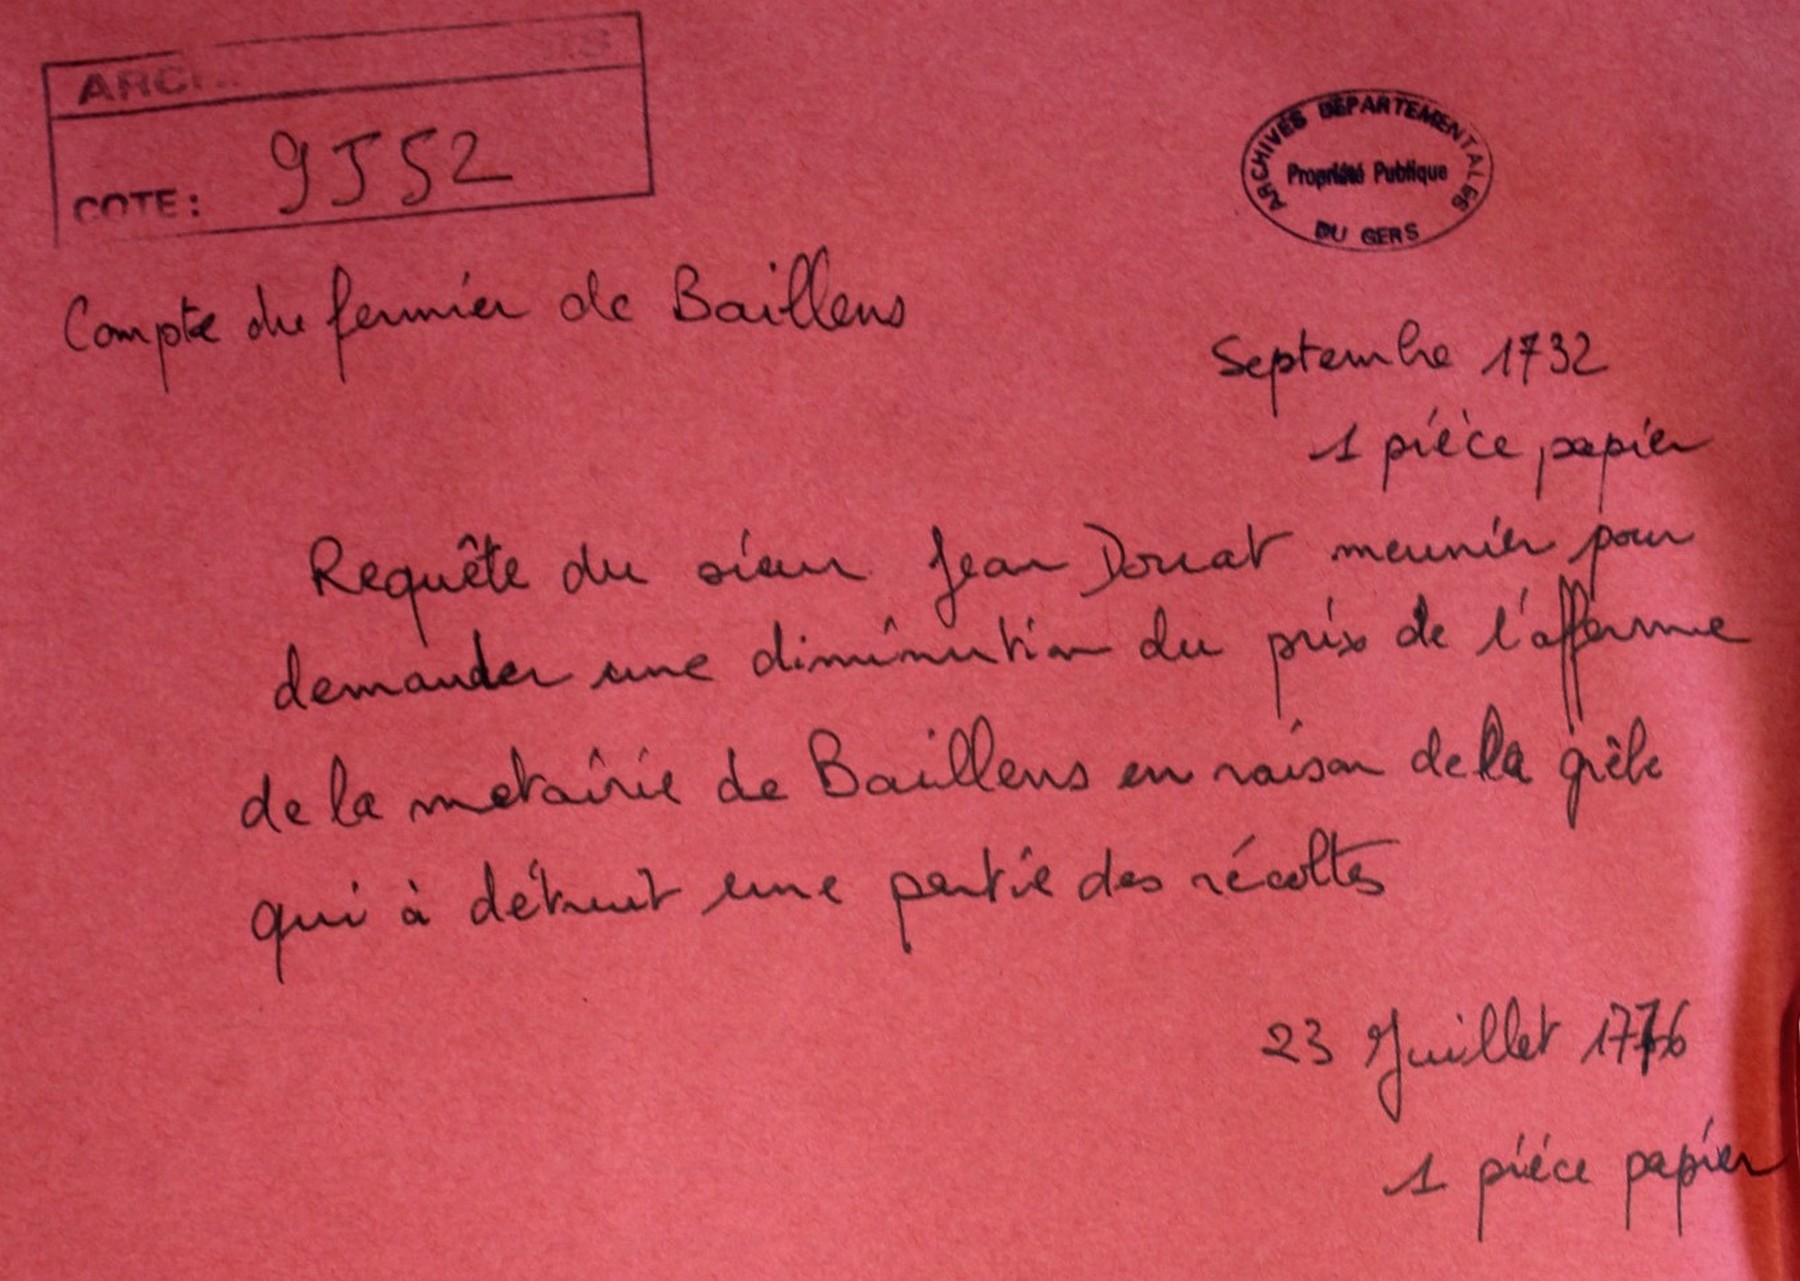 COTE : 9J52
ARCHIVES DÉPARTEMENTALES
Propriété Publique
DU GERS
Compte du fermier de Baillens
Septembre 1732
1 pièce papier
Requête du sieur Jean Douat meunier pour
demander une diminution du prix de l'afferme
de la metairie de Baillens en raison de la grêle
qui à détruit une partie des récoltes
23 Juillet 1776
1 piéce papier